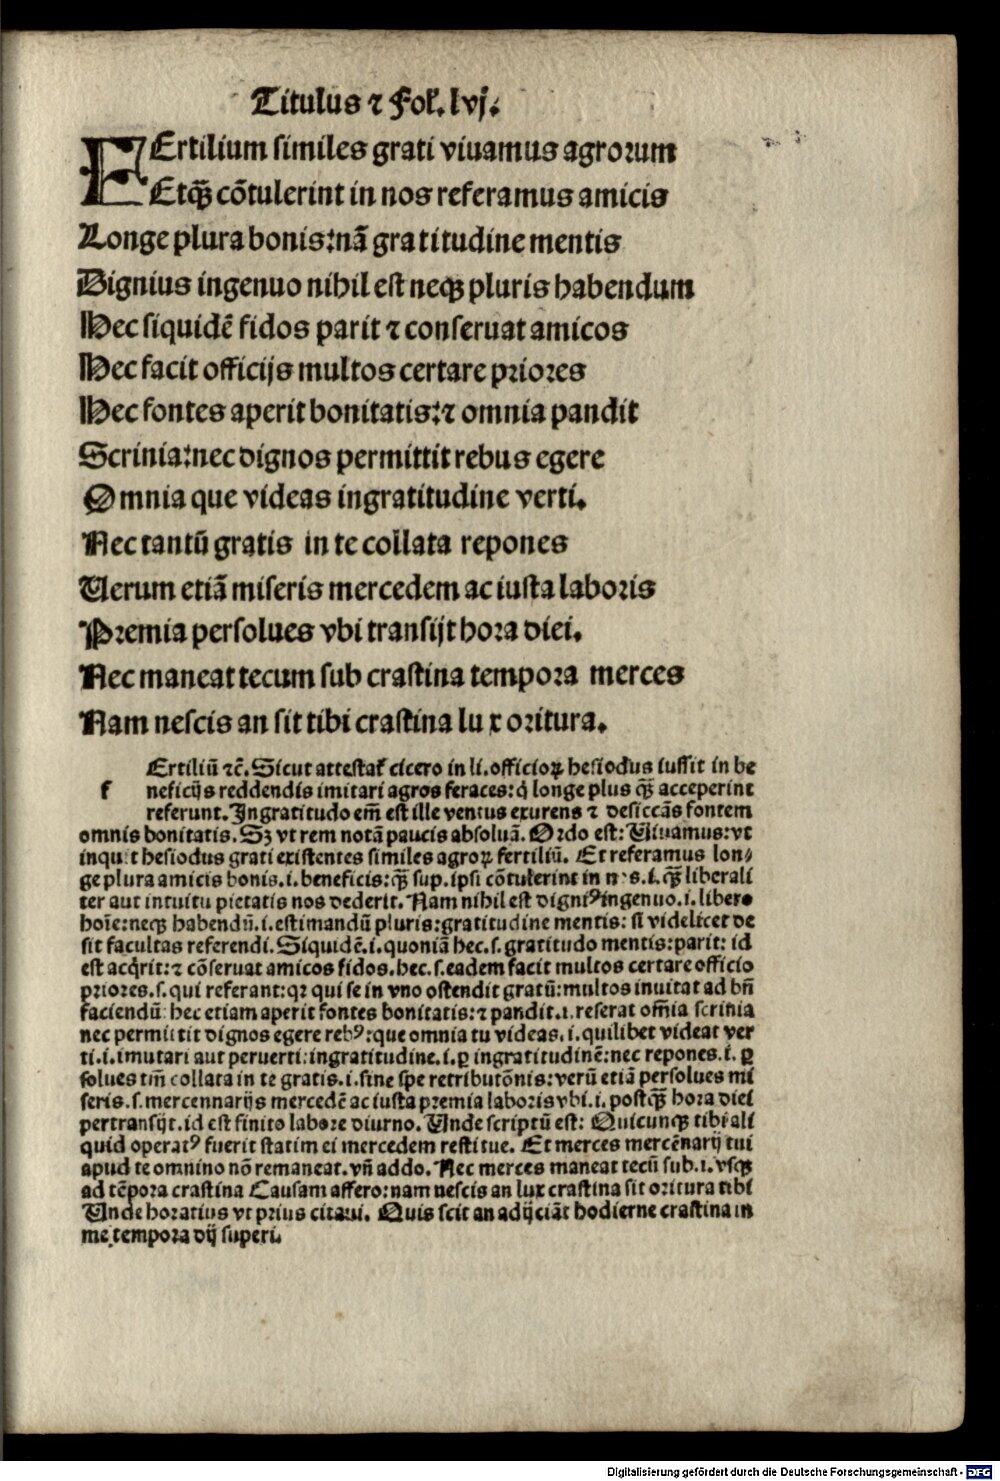 Titulus ⁊ Fol. lvj.
FErtilium similes grati viuamus agrorum
Etqꝫ cōtulerint in nos referamus amicis
Longe plura bonis:nā gratitudine mentis
Dignius ingenuo nihil est neqꝫ pluris habendum
Hec siquidē fidos parit ⁊ conseruat amicos
Hec facit officijs multos certare priores
Hec fontes aperit bonitatis:⁊ omnia pandit
Scrinia:nec dignos permittit rebus egere
Omnia que videas ingratitudine verti.
Nec tantū gratis in te collata repones
Uerum etiā miseris mercedem ac iusta laboris
Premia persolues vbi transijt hora diei.
Nec maneat tecum sub crastina tempora merces
Nam nescis an sit tibi crastina lux oritura.
Ertiliū ⁊c̄. Sicut attestat᷑ cicero in li. officioꝝ hesiodus iussit in be
f neficijs reddendis imitari agros feraces: q̇ longe plus qꝫ̄ acceperint
referunt. Ingratitudo em̄ est ille ventus exurens ⁊ desiccās fontem
omnis bonitatis. Sꝫ vt rem notā paucis absoluā. Ordo est: Uiuamus: vt
inquit hesiodus grati existentes similes agroꝝ fertiliū. Et referamus lon⸗
ge plura amicis bonis.i. beneficis: qꝫ̄ sup. ipsi cōtulerint in nos.i. qꝫ̄ liberali
ter aut intuitu pietatis nos dederit. Nam nihil est digniꝰ ingenuo.i. libero
hoīe: neqꝫ habendū.i. estimandū pluris: gratitudine mentis: si videlicet de
sit facultas referendi. Siquidē.i. quoniā hec.s. gratitudo mentis: parit: id
est acq̇rit: ⁊ cōseruat amicos fidos. hec.s. eadem facit multos certare officio
priores.s. qui referant: qꝛ qui se in vno ostendit gratū: multos inuitat ad bn̄
faciendū: hec etiam aperit fontes bonitatis: ⁊ pandit.i. reserat om̄ia scrinia
nec permittit dignos egere rebꝰ: que omnia tu videas.i. quilibet videat ver
ti.i. imutari aut peruerti: ingratitudine.i. ꝑ ingratitudinē: nec repones.i. ꝑ
solues tm̄ collata in te gratis.i. sine spe retributōnis: verū etiā persolues mi
seris.s. mercennarijs mercedē ac iusta premia laboris vbi.i. postqꝫ̄ hora diei
pertransijt. id est finito labore diurno. Unde scriptū est: Quicunqꝫ tibi ali
quid operatꝰ fuerit statim ei mercedem restitue. Et merces mercēnarij tui
apud te omnino nō remaneat. vn̄ addo. Nec merces maneat tecū sub.i. vsqꝫ
ad tēpora crastina Causam affero: nam nescis an lux crastina sit oritura tibi
Unde horatius vt prius citaui. Quis scit an adijciāt hodierne crastina in
me tempora dij superi.
Digitalisierung gefördert durch die Deutsche Forschungsgemeinschaft - DFG